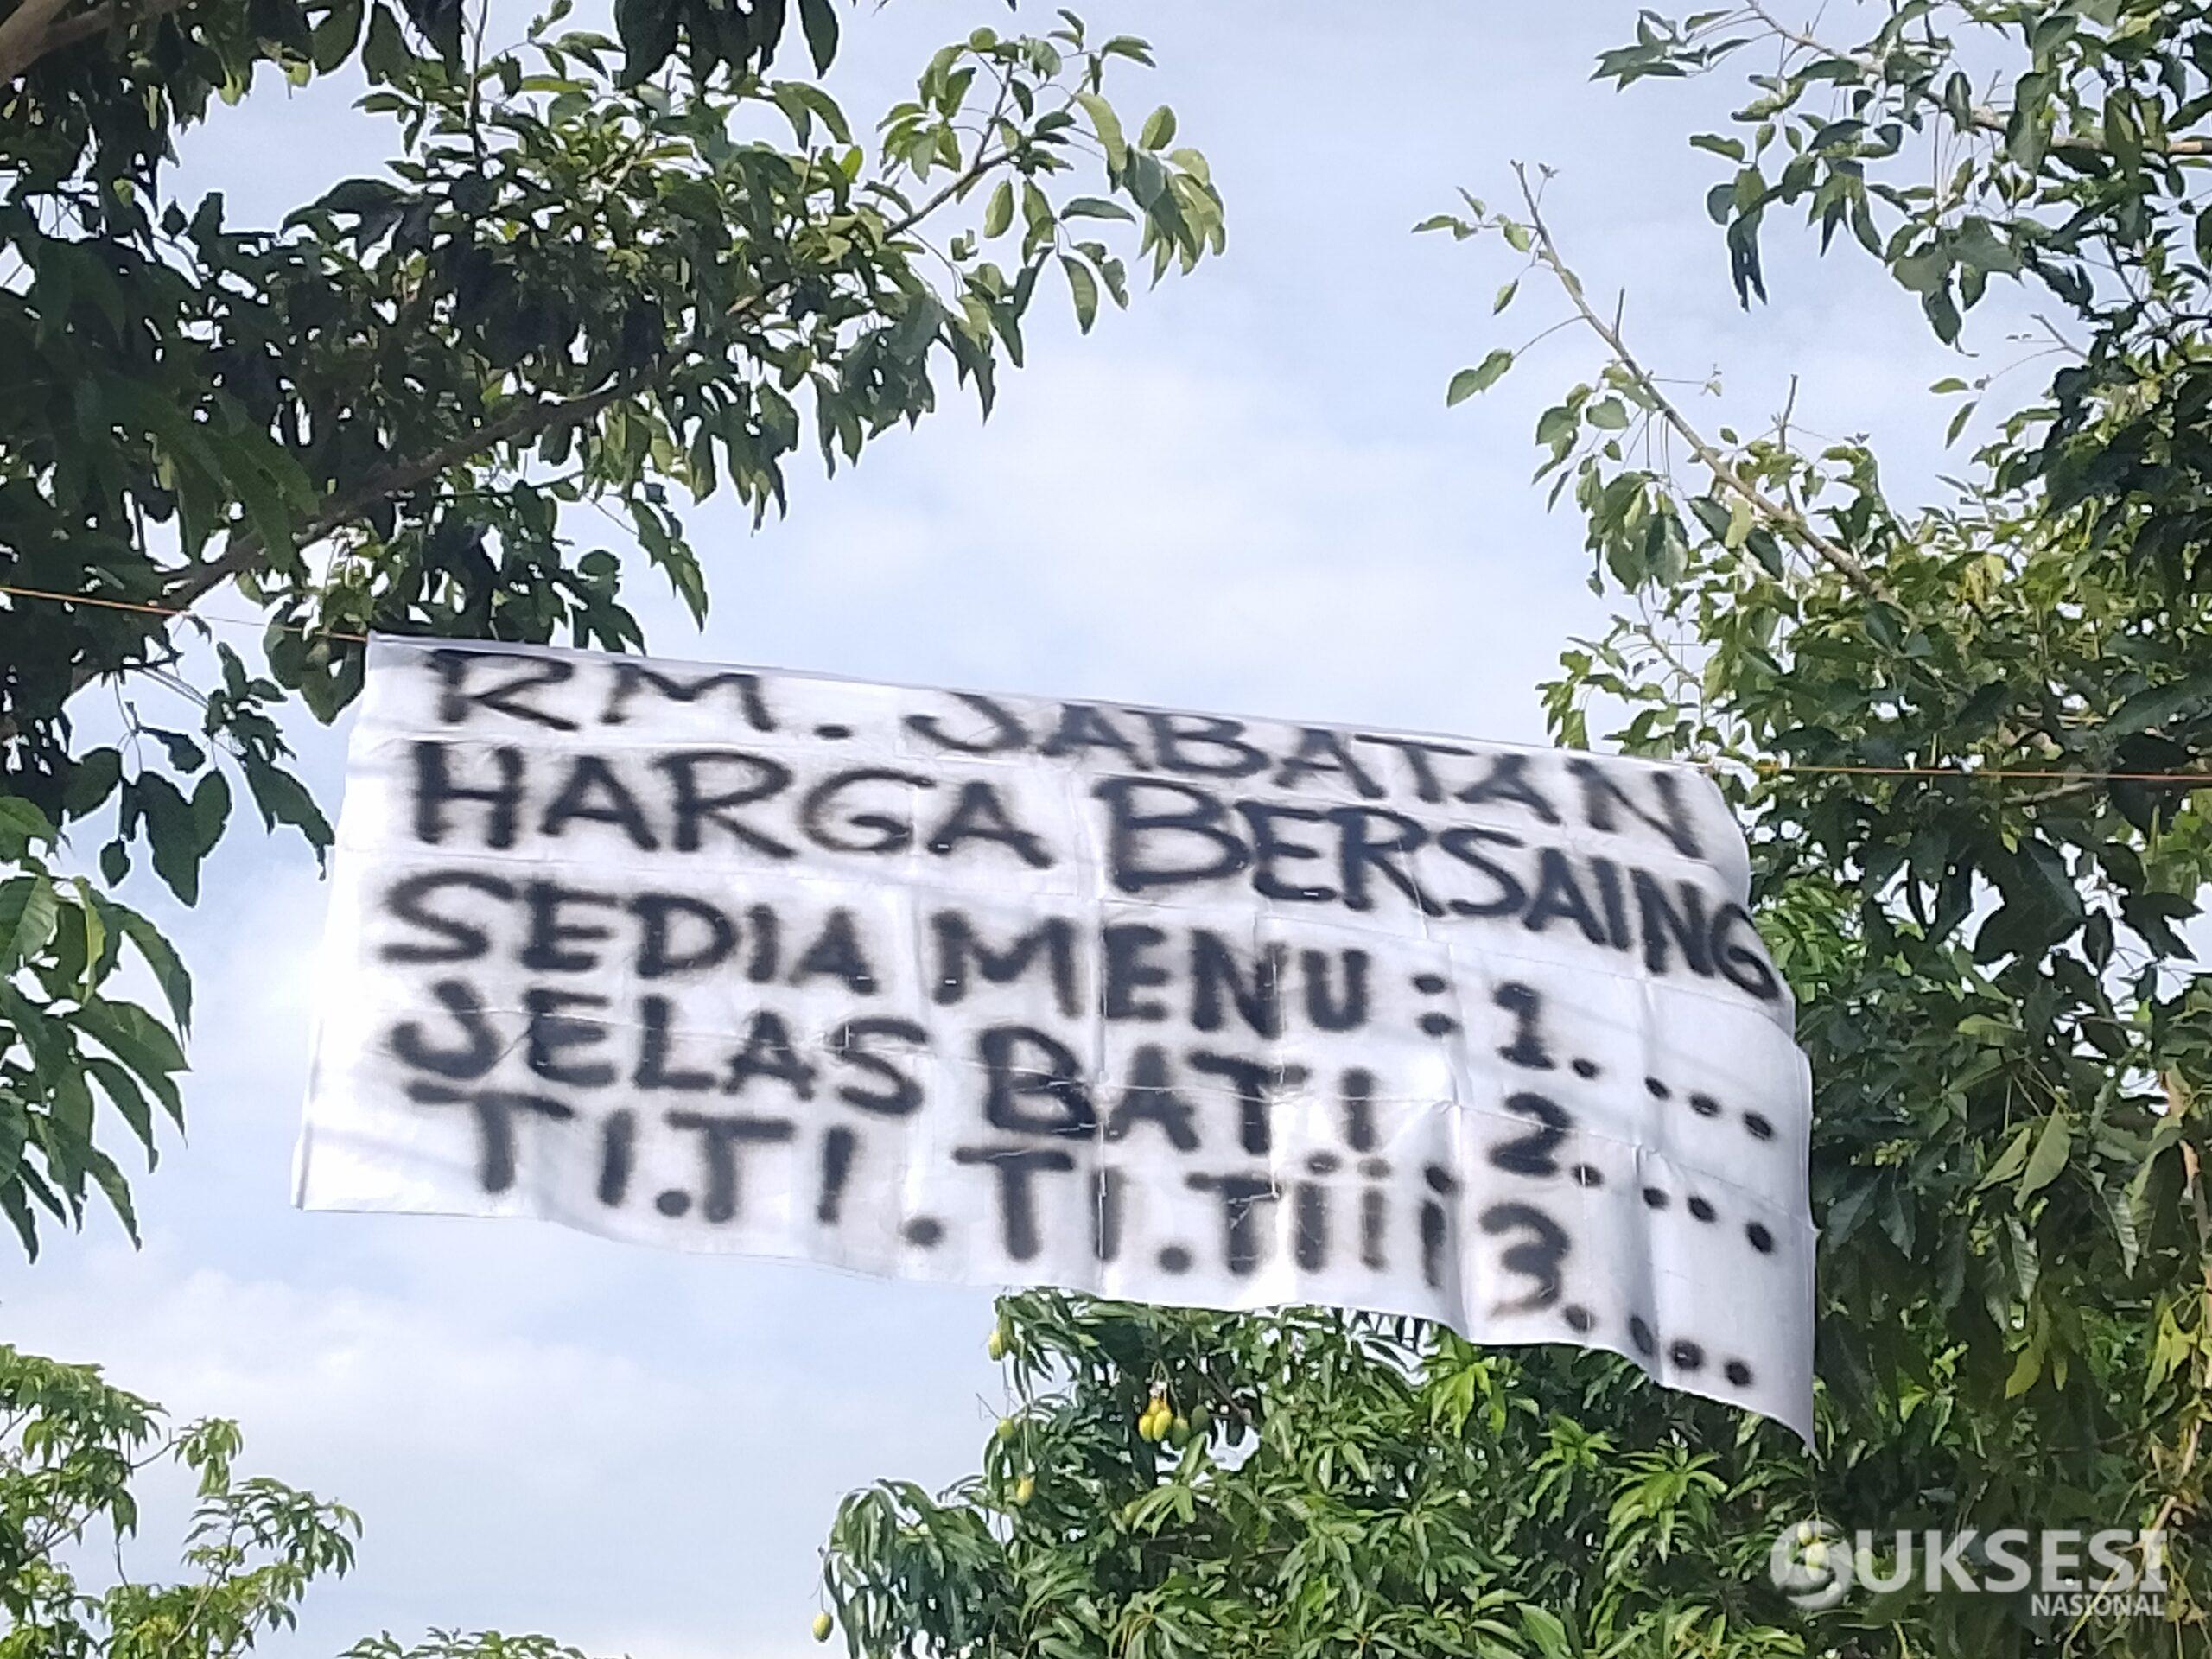 RM. JABATAN
HARGA BERSAING
SEDIA MENU : 1. ...
JELAS BATI 2. ...
TI.TI.TI.Tiii 3. ...
SUKSESI
NASIONAL